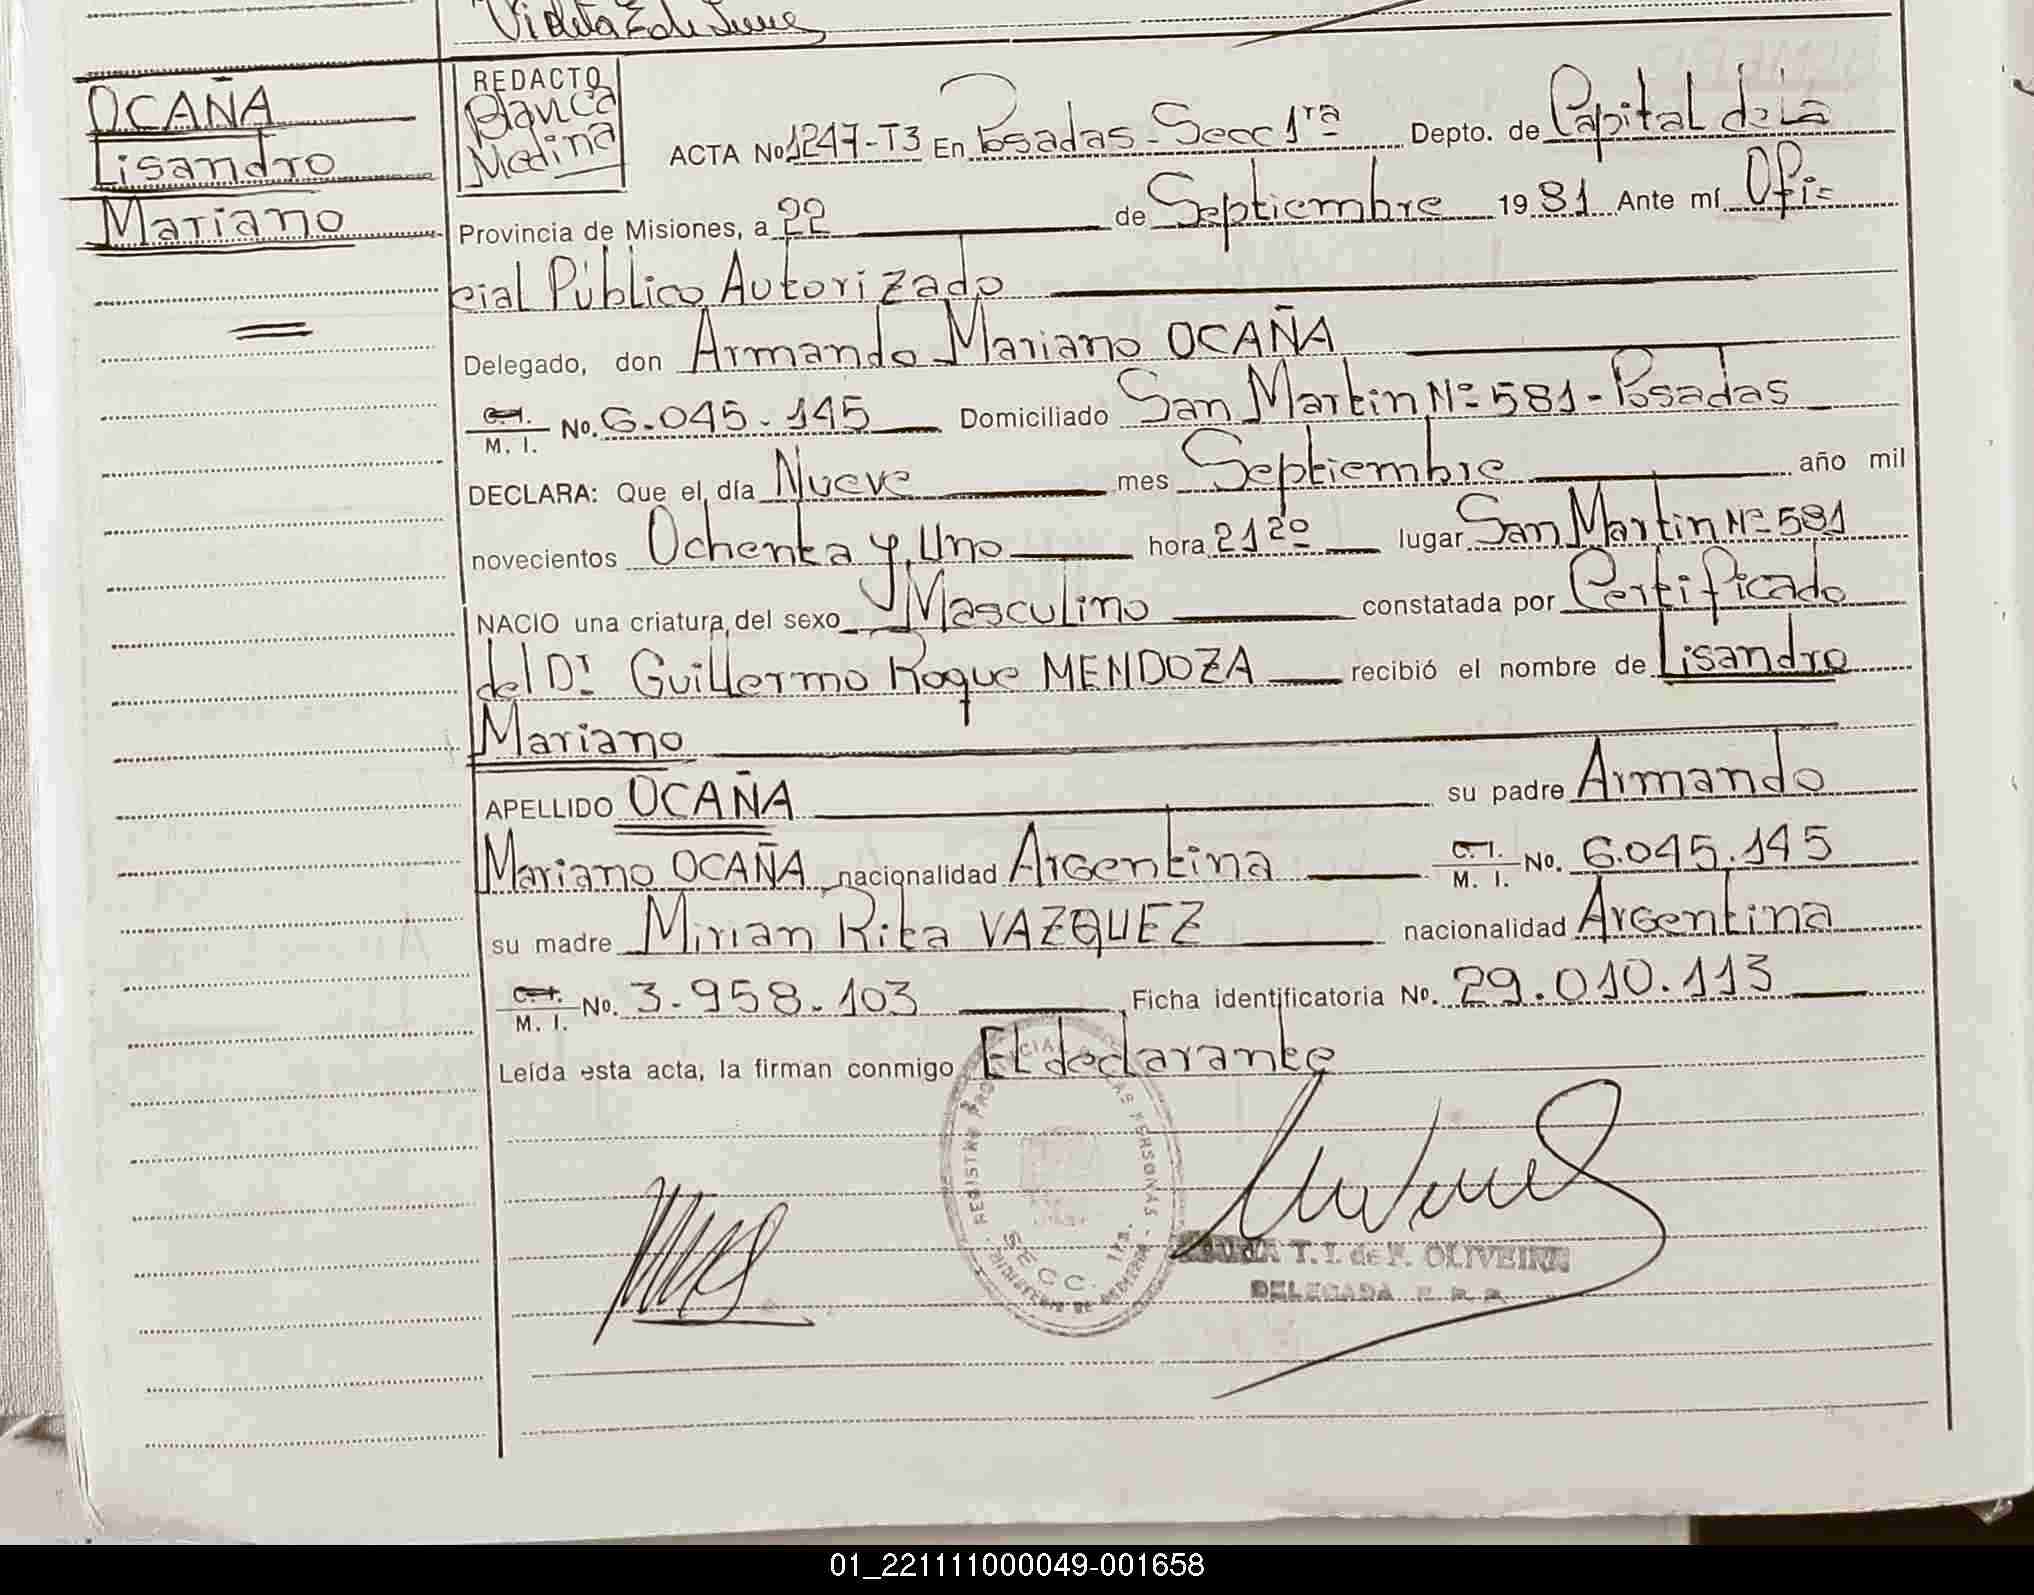 OCAÑA
Lisandro
Mariano
REDACTO
Blanca
Medina
ACTA No 1247-T3 En Posadas - Secc 1ra Depto. de Capital de La
Provincia de Misiones, a 22 de Septiembre 1981 Ante mí Ofi=
cial Público Autorizado
Delegado, don Armando Mariano OCAÑA
C.I. M. I. No. 6.045.145 Domiciliado San Martin Nº 581 - Posadas
DECLARA: Que el día Nueve mes Septiembre año mil
novecientos Ochenta y Uno hora 21 20 lugar San Martin Nº 581
NACIO una criatura del sexo Masculino constatada por Certificado
del Dr. Guillermo Roque MENDOZA recibió el nombre de Lisandro
Mariano
APELLIDO OCAÑA su padre Armando
Mariano OCAÑA nacionalidad Argentina C. I. M. I. No. 6.045.145
su madre Mirian Rita VAZQUEZ nacionalidad Argentina
C.I. M. I. No. 3.958.103 Ficha identificatoria No. 29.010.113
Leída esta acta, la firman conmigo El declarante
REGISTRO PROVINCIAL DE LAS PERSONAS
SECC. 1ra.
T. I. de F. OLIVEIRA
DELEGADA R. P. P.
01_221111000049-001658